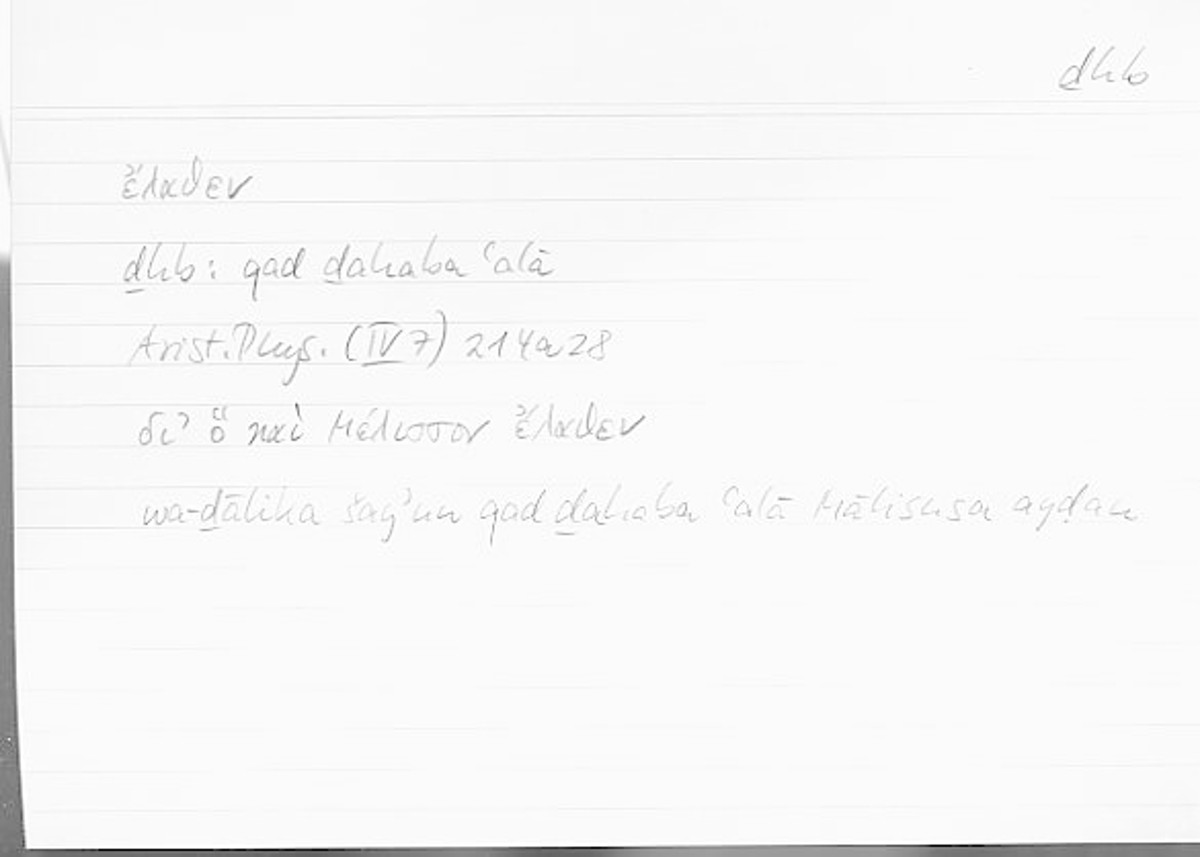 ḏhb
ἔλαθεν
ḏhb: qad ḏahaba ʿalā
Arist. Phys. (IV 7) 214a28
δι’ ὃ καὶ Μέλισσον ἔλαθεν
wa-ḏālika šayʾun qad ḏahaba ʿalā Mālisusa ayḍan